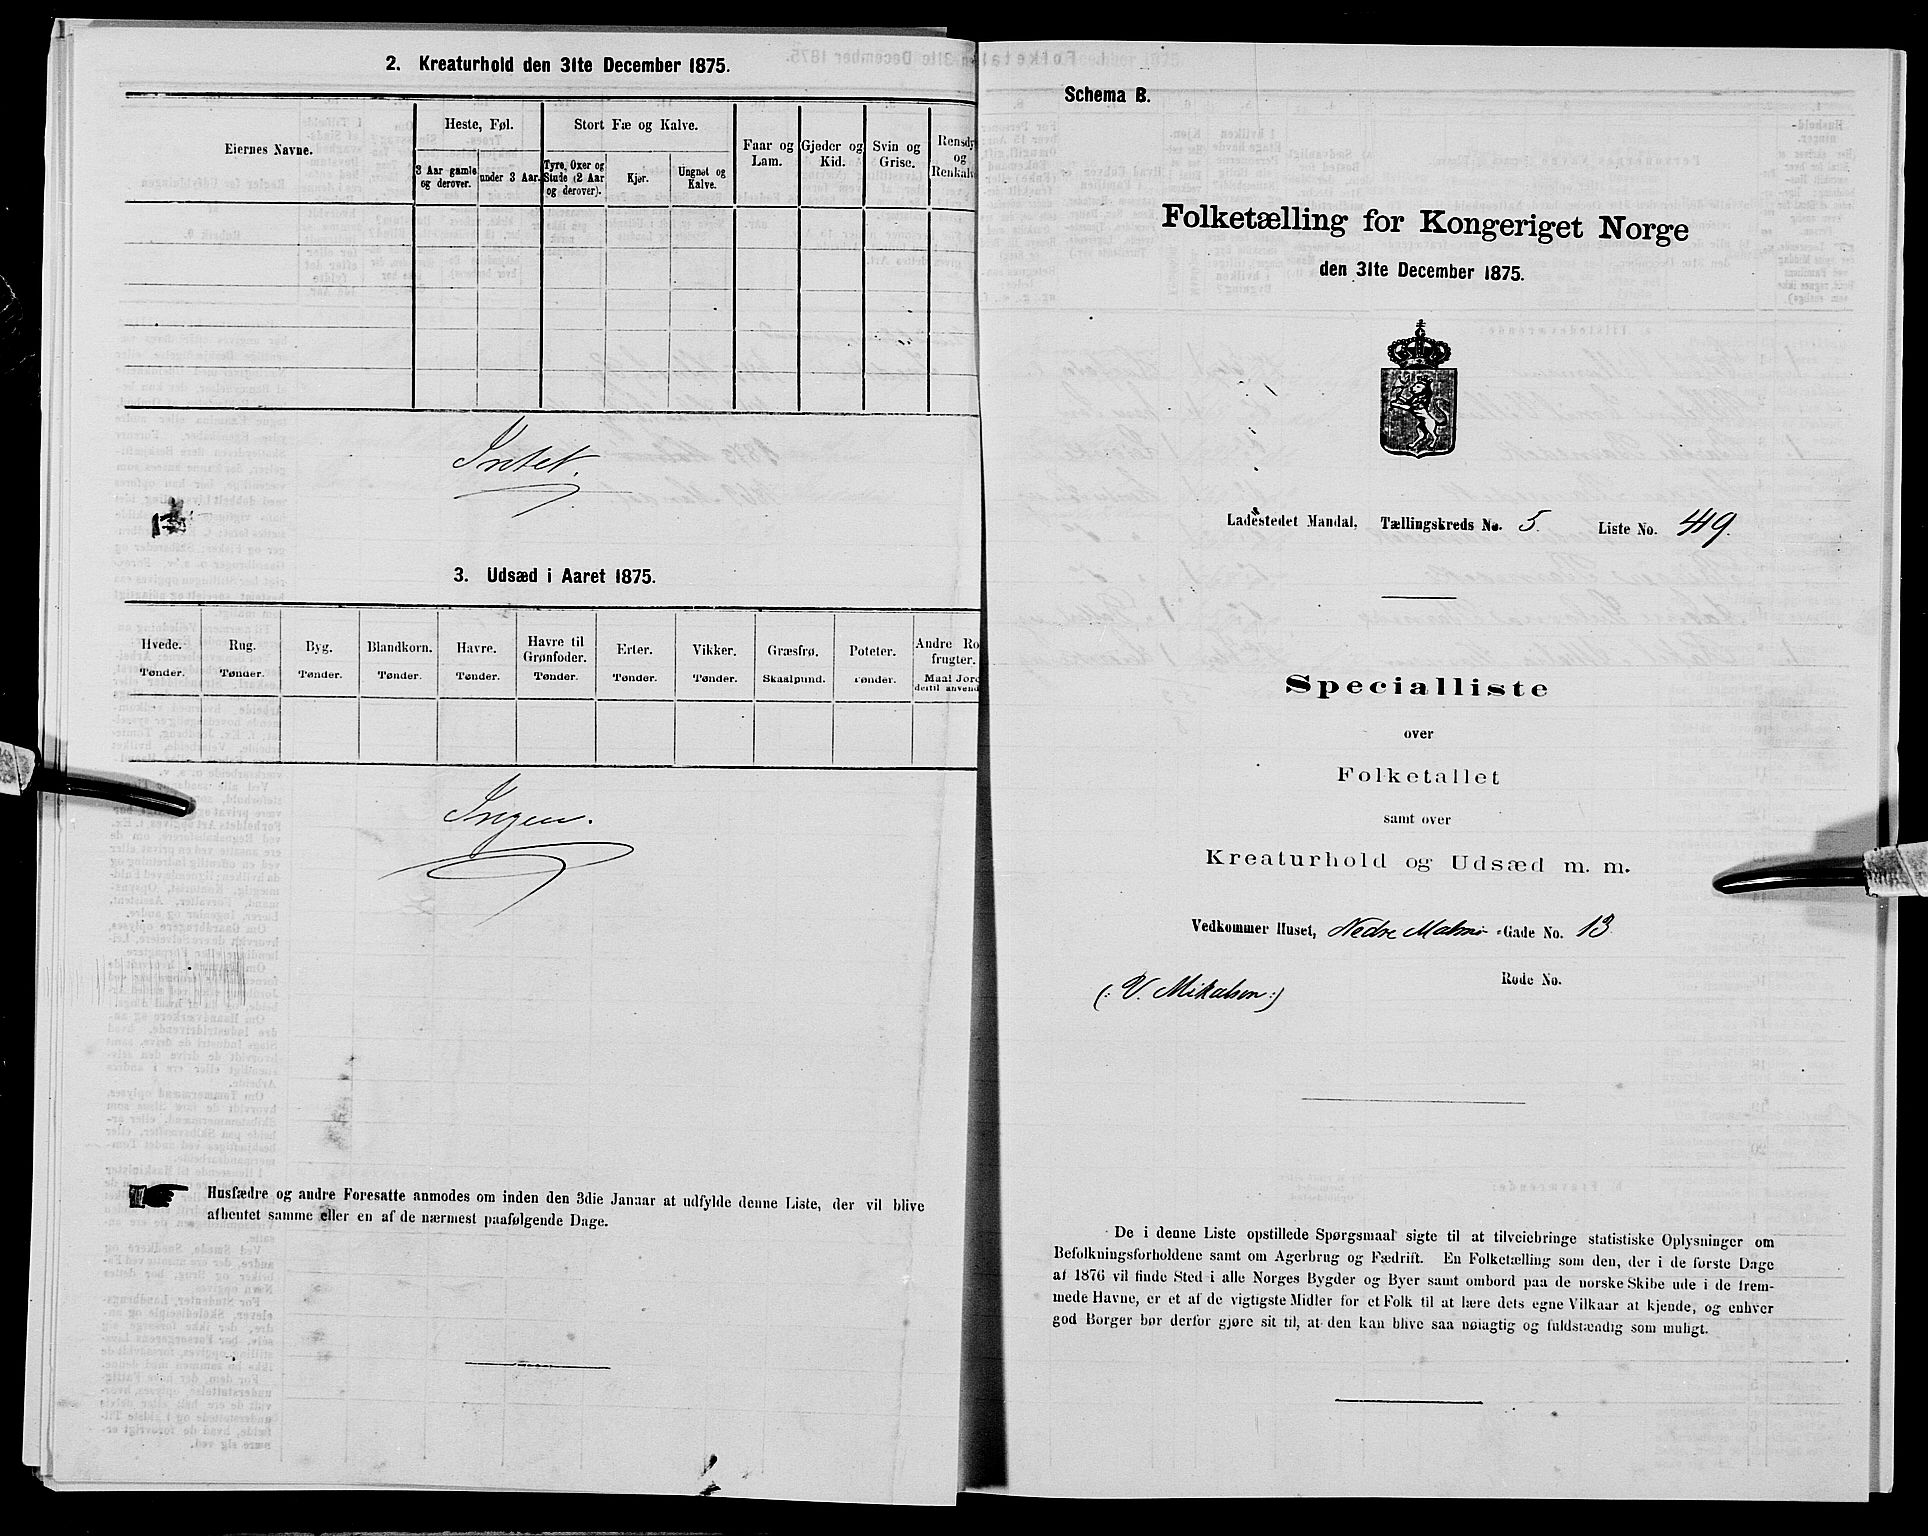 2. Kreaturhold den 31te December 1875.
Eiernes Navne.
Heste, Føl.
Stort Fæ og Kalve.
Faar og Lam.
Gjeder og Kid.
Svin og Grise.
Rensdy
og
Renkalv
3 Aar gamle og derover.
under 3 Aar.
Tyre, Oxer og Stude (2 Aar og derover).
Kjør.
Ungnøt og Kalve.
Intet.
3. Udsæd i Aaret 1875.
Hvede. Rug. Byg. Blandkorn. Havre. Havre til Grønfoder. Erter. Vikker. Græsfrø. Poteter. Andre Ro frugter.
Tønder. Tønder. Tønder. Tønder. Tønder. Tønder. Tønder. Tønder. Skaalpund. Tønder. Maal Jord dertil anvend
Ingen.
Husfædre og andre Foresatte anmodes om inden den 3die Januar at udfylde denne Liste, der vil blive
afhentet samme eller en af de nærmest paafølgende Dage.
Schema B.
Folketælling for Kongeriget Norge
den 31te December 1875.
Ladestedet Mandal, Tællingskreds No. 5. Liste No. 49.
Specialliste
over
Folketallet
samt over
Kreaturhold og Udsæd m. m.
Vedkommer Huset, Nedre Malmø-Gade No. 13
Rode No.
(: V. Mikalsen :)
De i denne Liste opstillede Spørgsmaal sigte til at tilveiebringe statistiske Oplysninger om
Befolkningsforholdene samt om Agerbrug og Fædrift. En Folketælling som den, der i de første Dage
af 1876 vil finde Sted i alle Norges Bygder og Byer samt ombord paa de norske Skibe ude i de frem-
mede Havne, er et af de vigtigste Midler for et Folk til at lære dets egne Vilkaar at kjende, og enhver
god Borger bør derfor gjøre sit til, at den kan blive saa nøiagtig og fuldstændig som muligt.